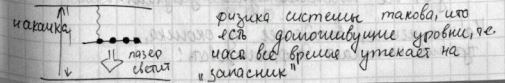 накачка
лазер
светит
физика системы такова, что
есть долгоживущие уровни, т.е.
часа все время утекает на
"запасник"